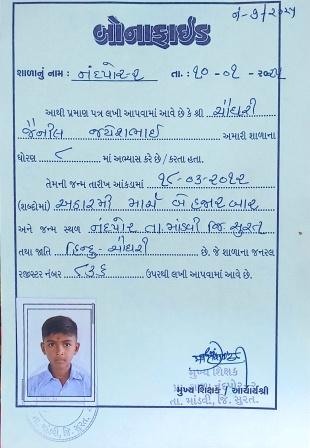 નં-૭/૨૦૨૫
બોનાફાઈડ
શાળાનું નામ : નંદપોર-૨ તા. : ૧૦-૦૧-
આથી પ્રમાણ પત્ર લખી આપવામાં આવે છે કે શ્રી ચૌધરી
જૈનીલ જયેશભાઈ અમારી શાળાના
ધોરણ ૮ માં અભ્યાસ કરે છે / કરતા હતા.
તેમની જન્મ તારીખ આંકડામાં ૧૮-૦૩-૨૦૧૨
(શબ્દોમાં) અઢારમી માર્ચ બે હજાર બાર
અને જન્મ સ્થળ નંદપોર તા. માંડવી જિ સુરત
તથા જાતિ હિન્દુ-ચૌધરી છે. જે શાળાના જનરલ
રજીસ્ટર નંબર ૮૩૬ ઉપરથી લખી આપવામાં આવે છે.
મુખ્ય શિક્ષક
મુખ્ય શિક્ષક / આચાર્યશ્રી
તા. માંડવી, જિ. સુરત.
તા. માંડવી, જિ. સુરત.